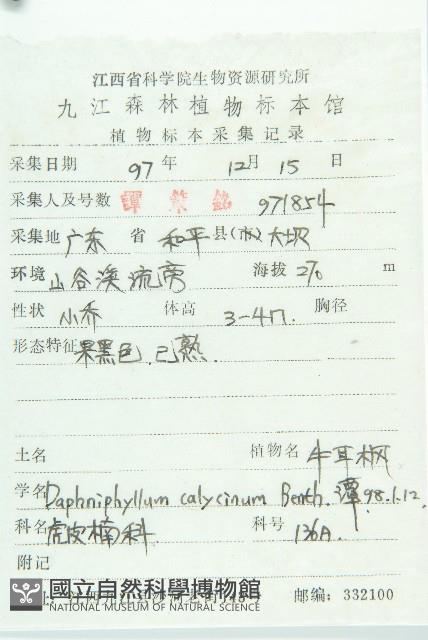 江西省科学院生物资源研究所
九江森林植物标本馆
植物标本采集记录
采集日期 97年 12月 15日
采集人及号数 譚策銘 971854
采集地 广东省 和平县(市) 大坝
环境 山谷溪流旁 海拔 270 m
性状 小乔 体高 3-4m. 胸径
形态特征 果黑色.已熟.
土名 植物名 牛耳枫
学名 Daphniphyllum calycinum Benth. 譚98.1.12.
科名 虎皮楠科 科号 136A.
附记
國立自然科學博物館
NATIONAL MUSEUM OF NATURAL SCIENCE
邮编: 332100